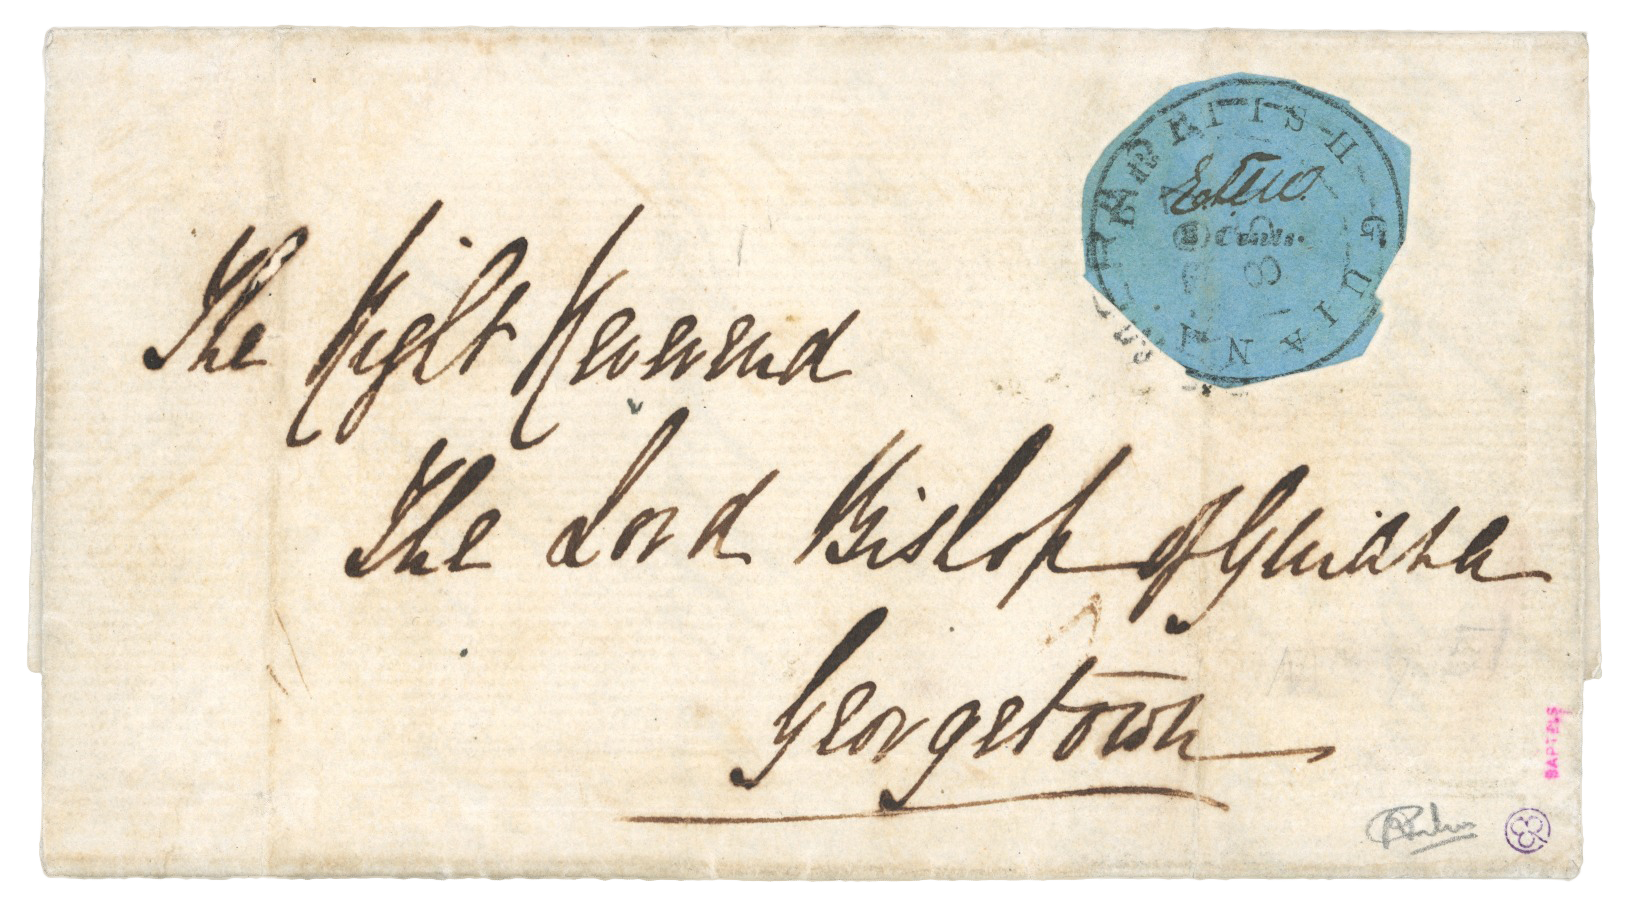 BRITISH GUIANA
Cents.
The Right Reverend
The Lord Bishop of Guiana
Georgetown
BARTELS